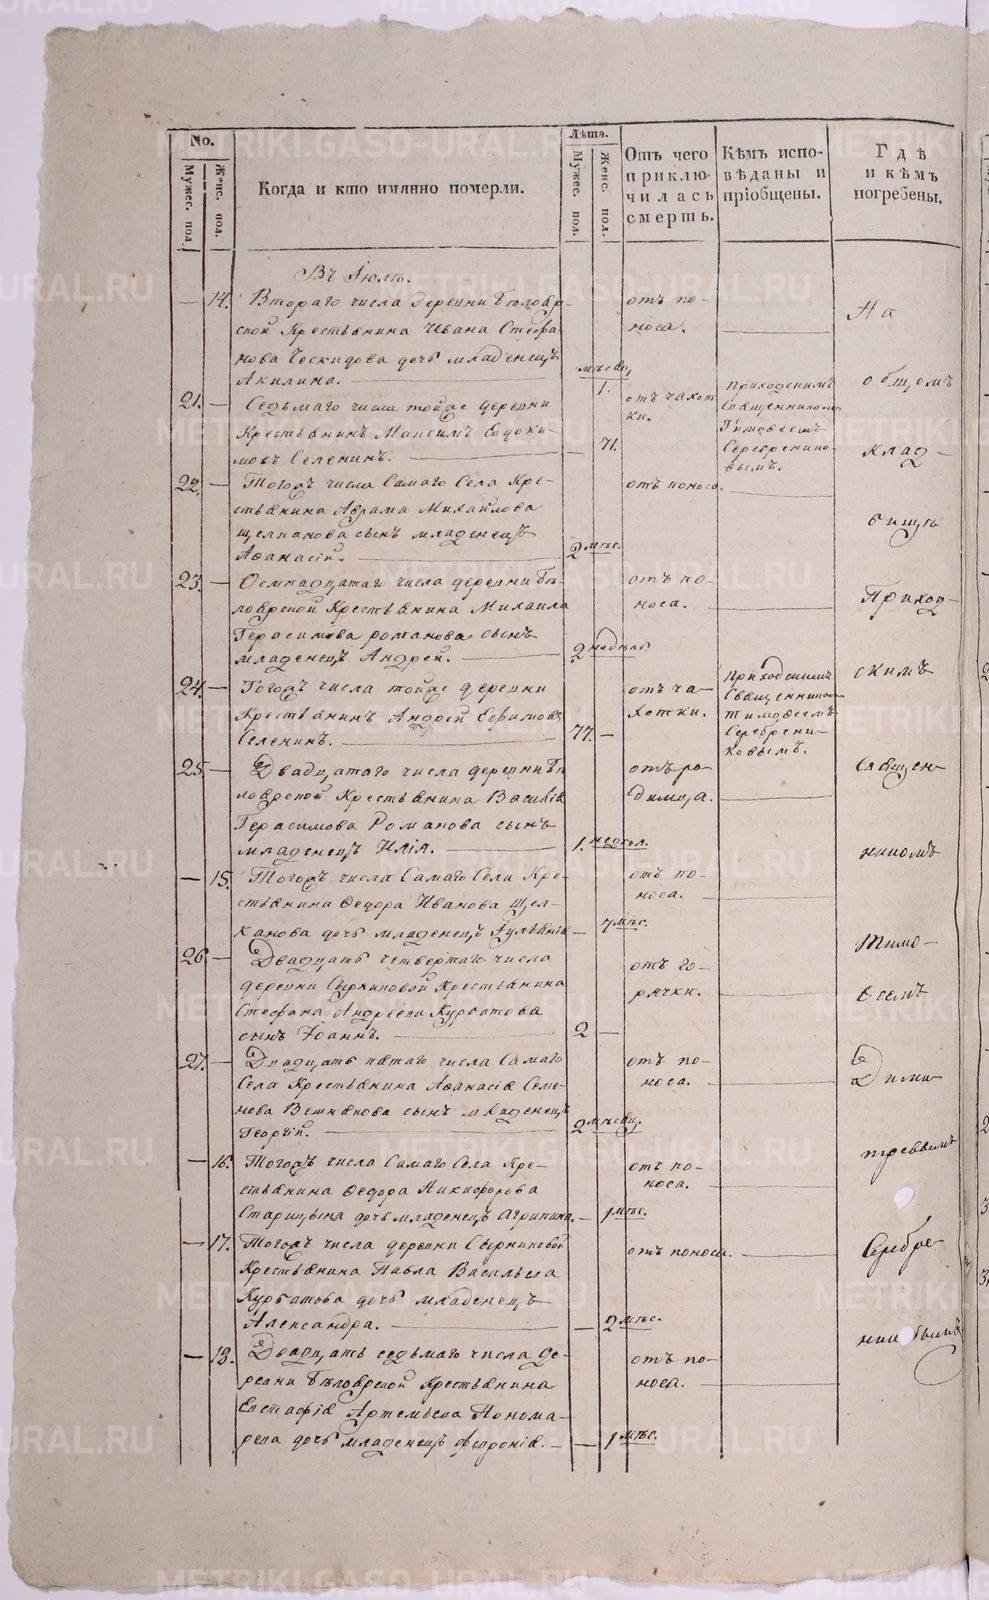 No.
Мужес. пол.
Женс. пол.
Когда и кто имянно померли.
Лѣта.
Мужес. пол.
Женс. пол.
Отъ чего
приклю-
чилась
смерть.
Кѣмъ испо-
вѣданы и
пріобщены.
Гдѣ
и кѣмъ
погребены.
Въ Іюлѣ.
— 14. Втораго числа деревни Бѣловр-
ской Крестьянина Ивана Стефа
нова Ческидова дочь младенецъ
Акилина. — мѣсяц 1.
отъ по-
носа.
21. — Седьмаго числа тойже деревни
Крестьянинъ Максимъ Евдоки-
мовъ Селенинъ. — 71.
отъ чахот
ки.
приходскимъ
Священникомъ
Тимовеемъ
Серебренико-
вымъ.
22. — Тогожъ числа Самаго Села Кре-
стьянина Аврама Михайлова
Щелканова сынъ младенецъ
Аѳанасій. — 2 мѣс.
отъ поноса.
23. — Осмнадцатаго числа деревни Бѣ-
ловрской Крестьянина Михаила
Герасимова романова сынъ
младенецъ Андрей. — 2 недѣль
отъ по-
носа.
24. — Тогожъ числа тойже деревни
Крестьянинъ Андрей Ефимовъ
Селенинъ. — 77. —
отъ ча-
хотки.
приходскимъ
Священником
тимоѳеемъ
Серебрени-
ковымъ.
25. — Двадцатаго числа деревни Бѣ
ловрской Крестьянина Василія
Герасимова Романова сынъ
младенецъ Илія. — 1. недѣл.
отъ ро-
димца.
— 15. Тогожъ числа Самаго Села Кре-
стьянина Ѳедора Иванова Щел-
канова дочь младенецъ Іуліанія — 7 мѣс.
отъ по-
носа.
26. — Двадцать четвертаго числа
деревни Крестьянина
Стефана Андреева Курбатова
сынъ Іоаннъ. — 2 —
отъ го-
рячки.
27. — Двадцать пятаго числа Самаго
Села Крестьянина Аѳанасія Семе-
нова Вешнякова сынъ младенецъ
Георгій. — 2 мѣсяц.
отъ по-
носа.
— 16. Тогожъ числа Самаго Села Кре-
стьянина Ѳедора Никифорова
Старицына дочь младенецъ Агрипина. — 1 мѣс.
отъ по-
носа.
— 17. Тогожъ числа деревни
Крестьянина Павла Васильева
Курбатова дочь младенецъ
Александра. — 2 мѣс.
отъ поноса.
— 18. Двадцать седьмаго числа де-
ревни Бѣловрской Крестьянина
Евстафія Артемьева Понома-
рева дочь младенецъ Февронія. — 1 мѣс.
отъ по-
носа.
На
общемъ
клад-
бищѣ
Приход-
скимъ
Священ-
никомъ
Тимо-
ѳеемъ
Дими-
тревымъ
Серебре-
никовымъ
METRIKI.GASO-URAL.RU